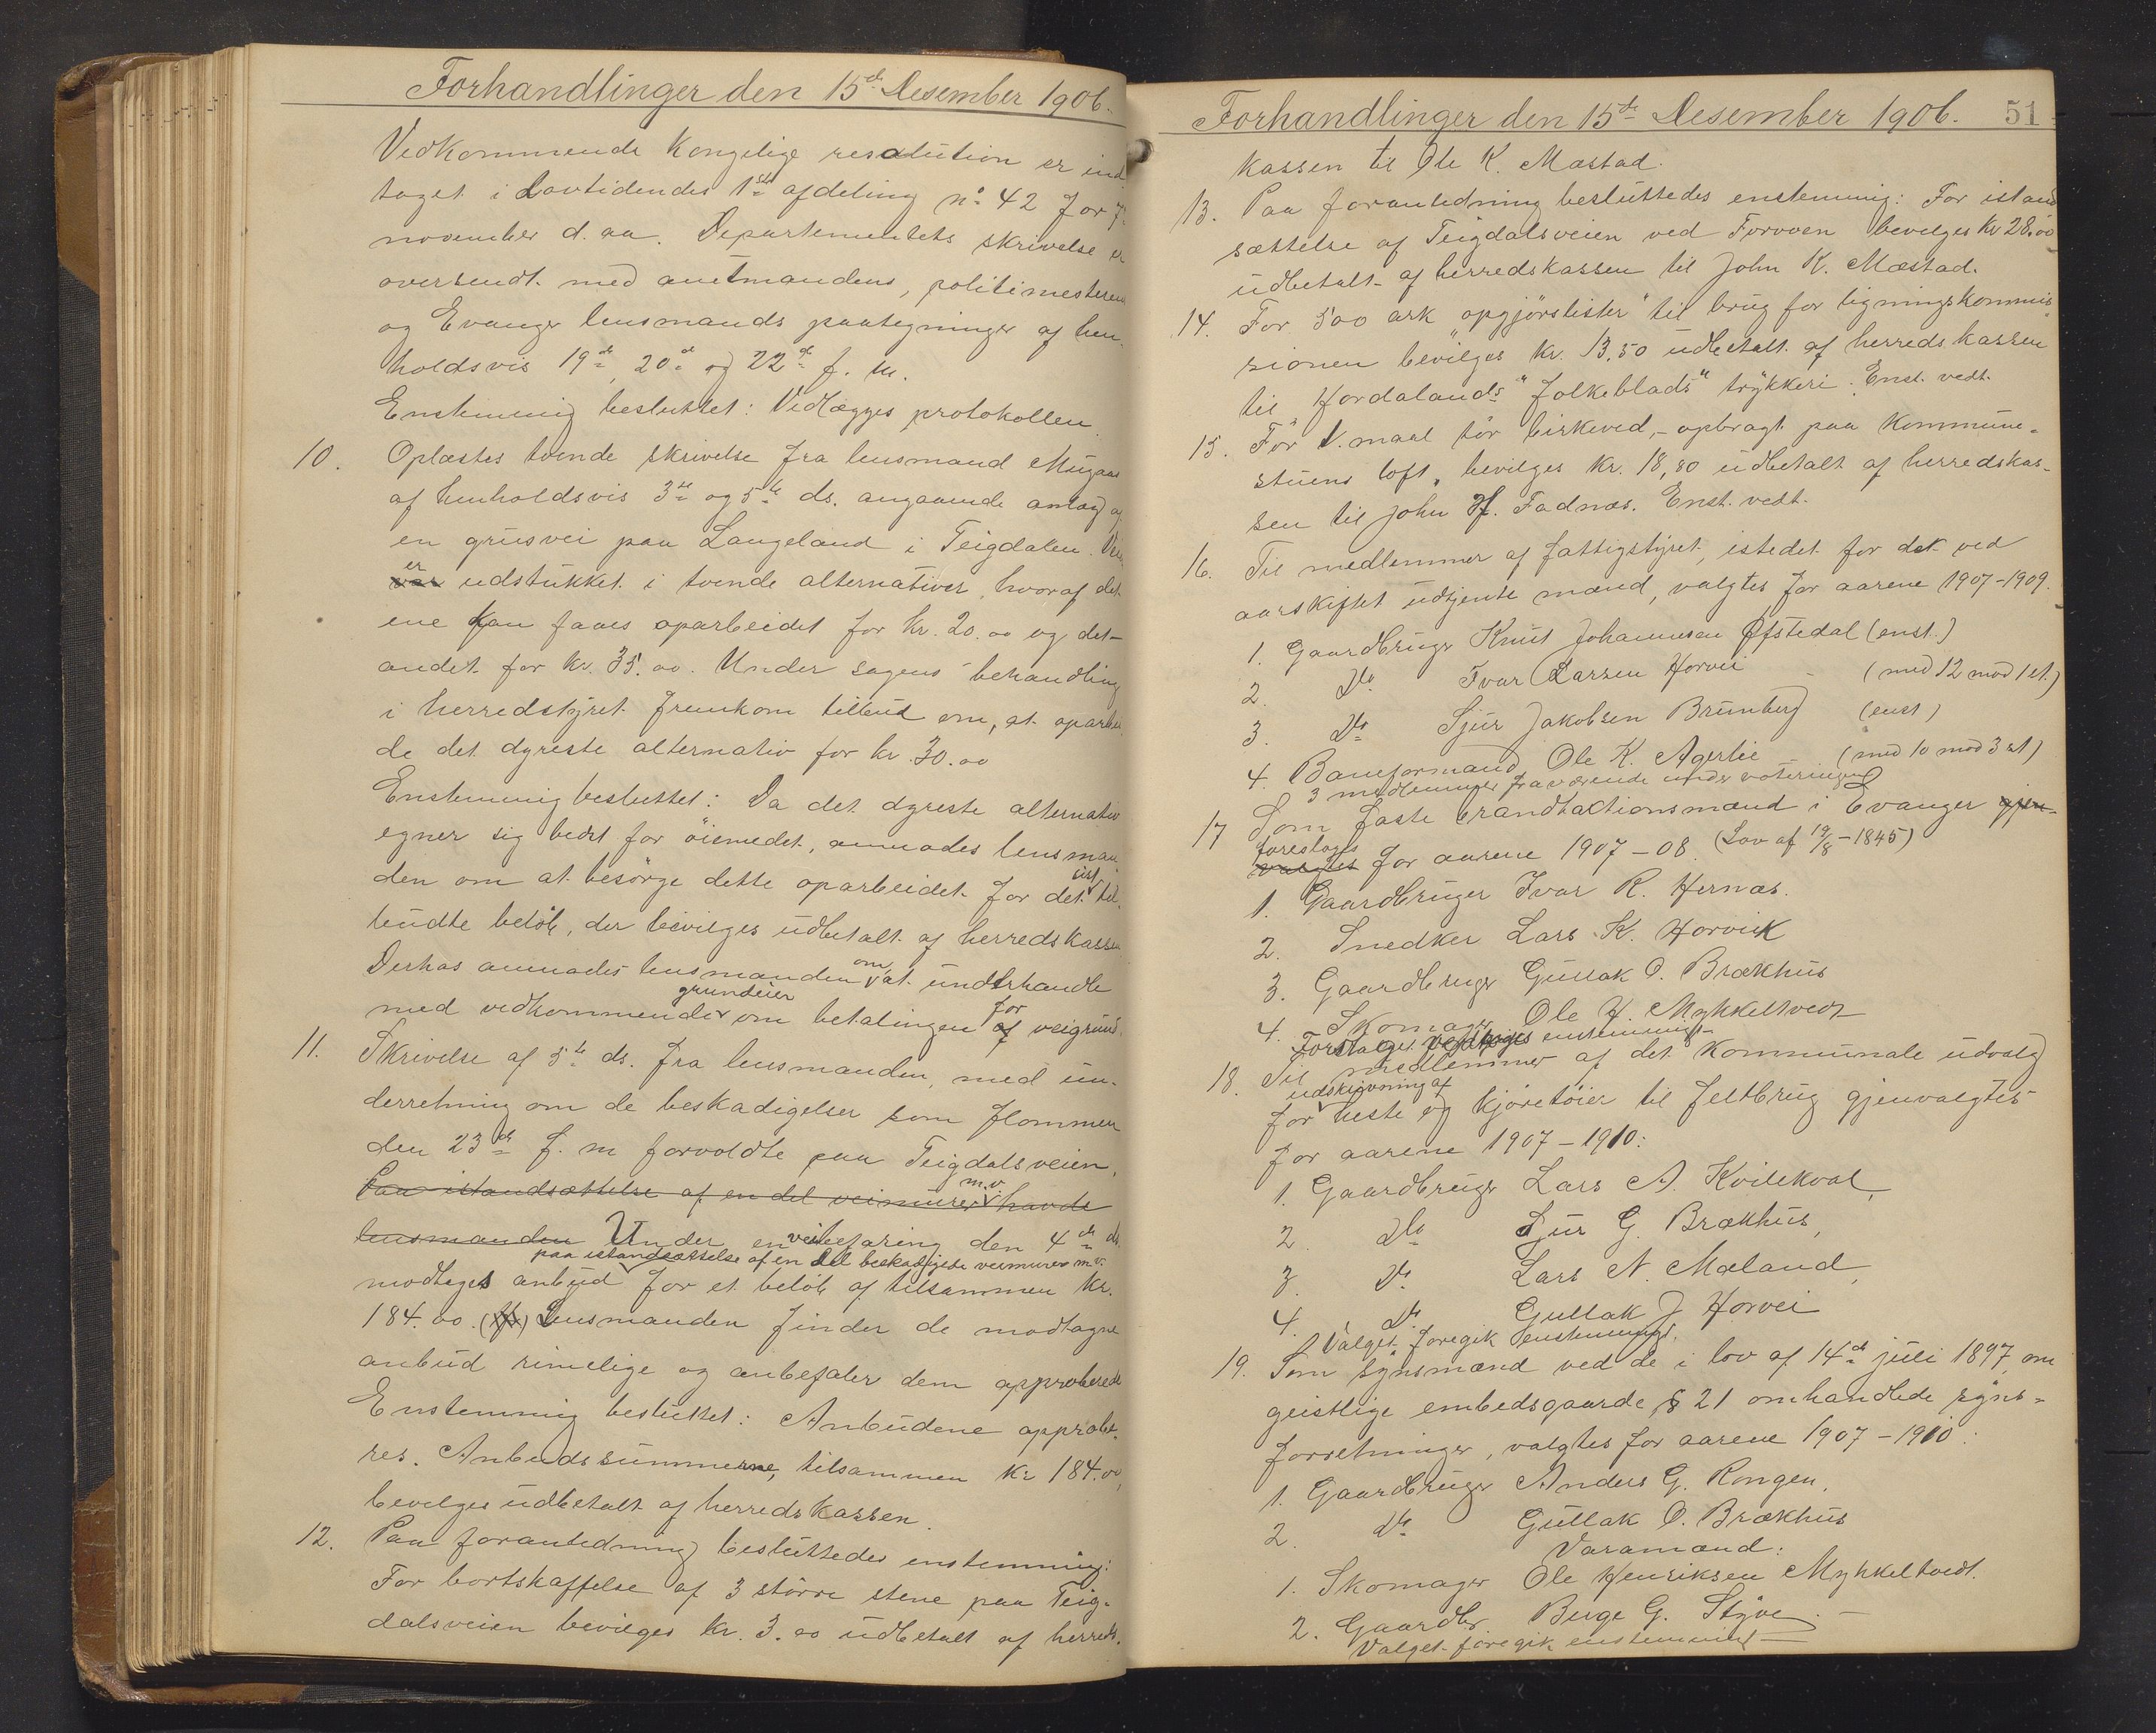 Forhandlinger den 15de Desember 1906.
Vedkommende kongelige resolution er ind-
taget i Lovtidendes 1ste afdeling no 42 for 7.
november d. aa. Departementets skrivelse er
oversendt med amtmandens, politimesterens
og Evanger lensmands paategninger af hen-
holdsvis 19de, 20de og 22de f. m.
Enstemmig besluttet: Vedlægges protokollen.
10. Oplæstes tvende skrivelse fra lensmand Mugaas
af henholdsvis 3de og 5te ds. angaaende anlæg af
en grusvei paa Langeland i Teigdalen. Veien
er udstukket i tvende alternativer, hvoraf det
ene kan faaes oparbeidet for kr. 20.00 og det
andet for kr. 35.00. Under sagens behandling
i herredstyret fremkom tilbud om, at oparbei-
de det dyreste alternativ for kr. 30.00
Enstemmig besluttet: Da det dyreste alternativ
egner sig bedst for öiemedet, anmodes lensman-
den om at besörge dette oparbeidet for det sist til-
budte belöb, der bevilges udbetalt af herredskassen
Derhos anmodes lensmanden om at underhandle
med vedkommende grundeier om betalingen for veigrund.
11. Skrivelse af 5te ds. fra lensmanden, med un-
derretning om de beskadigelser som flommen
den 23de f. m forvoldte paa Teigdalsveien.
Paa istandsættelse af en del veimurer m.v havde
lensmanden Under en veibefaring den 4de ds.
paa istandsættelse af en del beskadigede veimurer m.v.
modtages anbud for et belöb af tilsammen kr.
184.00. Lensmanden finder de modtagne
anbud rimelige og anbefaler dem approberede
Enstemmig besluttet: Anbudene approbe-
res. Anbudssummerne, tilsammen kr 184.00,
bevilges udbetalt af herredskassen.
12. Paa foranledning besluttedes enstemmig:
For bortskaffelse af 3 större stene paa Teig-
dalsveien bevilges kr. 3.00 udbetalt af herreds-
Forhandlinger den 15de Desember 1906. 51
kassen til Ole K. Mæstad.
13. Paa foranledning besluttedes enstemmig: For istand-
sættelse af Teigdalsveien ved Furvoen bevilges kr 28.00
udbetalt af herredskassen til John K. Mæstad.
14. For 500 ark "opgjörslister" til brug for ligningskommis-
sionen bevilges kr. 13.50 udbetalt af herredskassen
til "Hordalands folkeblads" trykkeri. Enst. vedt.
15. For 1. maal tör birkeved, – opbragt paa kommune-
stuens loft, bevilges kr. 18,80 udbetalt af herredskas-
sen til John H. Fadnæs. Enst. vedt.
16. Til medlemmer af fattigstyret, istedet for det ved
aarskiftet udtjente mænd, valgtes for aarene 1907-1909.
1. Gaardbruger Knut Johannesen Öfstedal (enst.)
2. Do Ivar Larsen Horvei (med 12 mod 1 st.)
3. Do Sjur Jakobsen Brunborg (enst)
4. Baneformand Ole K. Agerlie (med 10 mod 3 st)
3 medlemmer fraværende under voteringen
17 Som faste brandtaxtionsmænd i Evanger gjen-
foreslages valgtes for aarene 1907-08. (Lov af 19/8-1845)
1. Gaardbruger Ivar R. Hernæs.
2. Snedker Lars K. Horvei
3. Gaardbruger Gullak O. Brækhus
4. Skomager Ole H. Mykkeltvedt
Forslaget vedtoges enstemmigt
18. Til medlemmer af det kommunale udvalg
for udskrivning af heste og kjöretöier til feltbrug gjenvalgtes
for aarene 1907-1910:
1. Gaardbruger Lars A. Kvilekval,
2. Do Sjur G. Brækhus,
3. Do Lars N. Mæland,
4. Do Gullak J. Horvei
Valget foregik enstemmigt.
19. Som synsmænd ved de i lov af 14de juli 1897 om
geistlige embedsgaarde, § 21 omhandlede syns-
forretninger, valgtes for aarene 1907-1910:
1. Gaardbruger Anders G. Rongen,
2. Do Gullak O. Brækhus
Varamænd:
1. Skomager Ole Henriksen Mykkeltvedt.
2. Gaardbr. Berge G. Styve. –
Valget foregik enstemmigt –